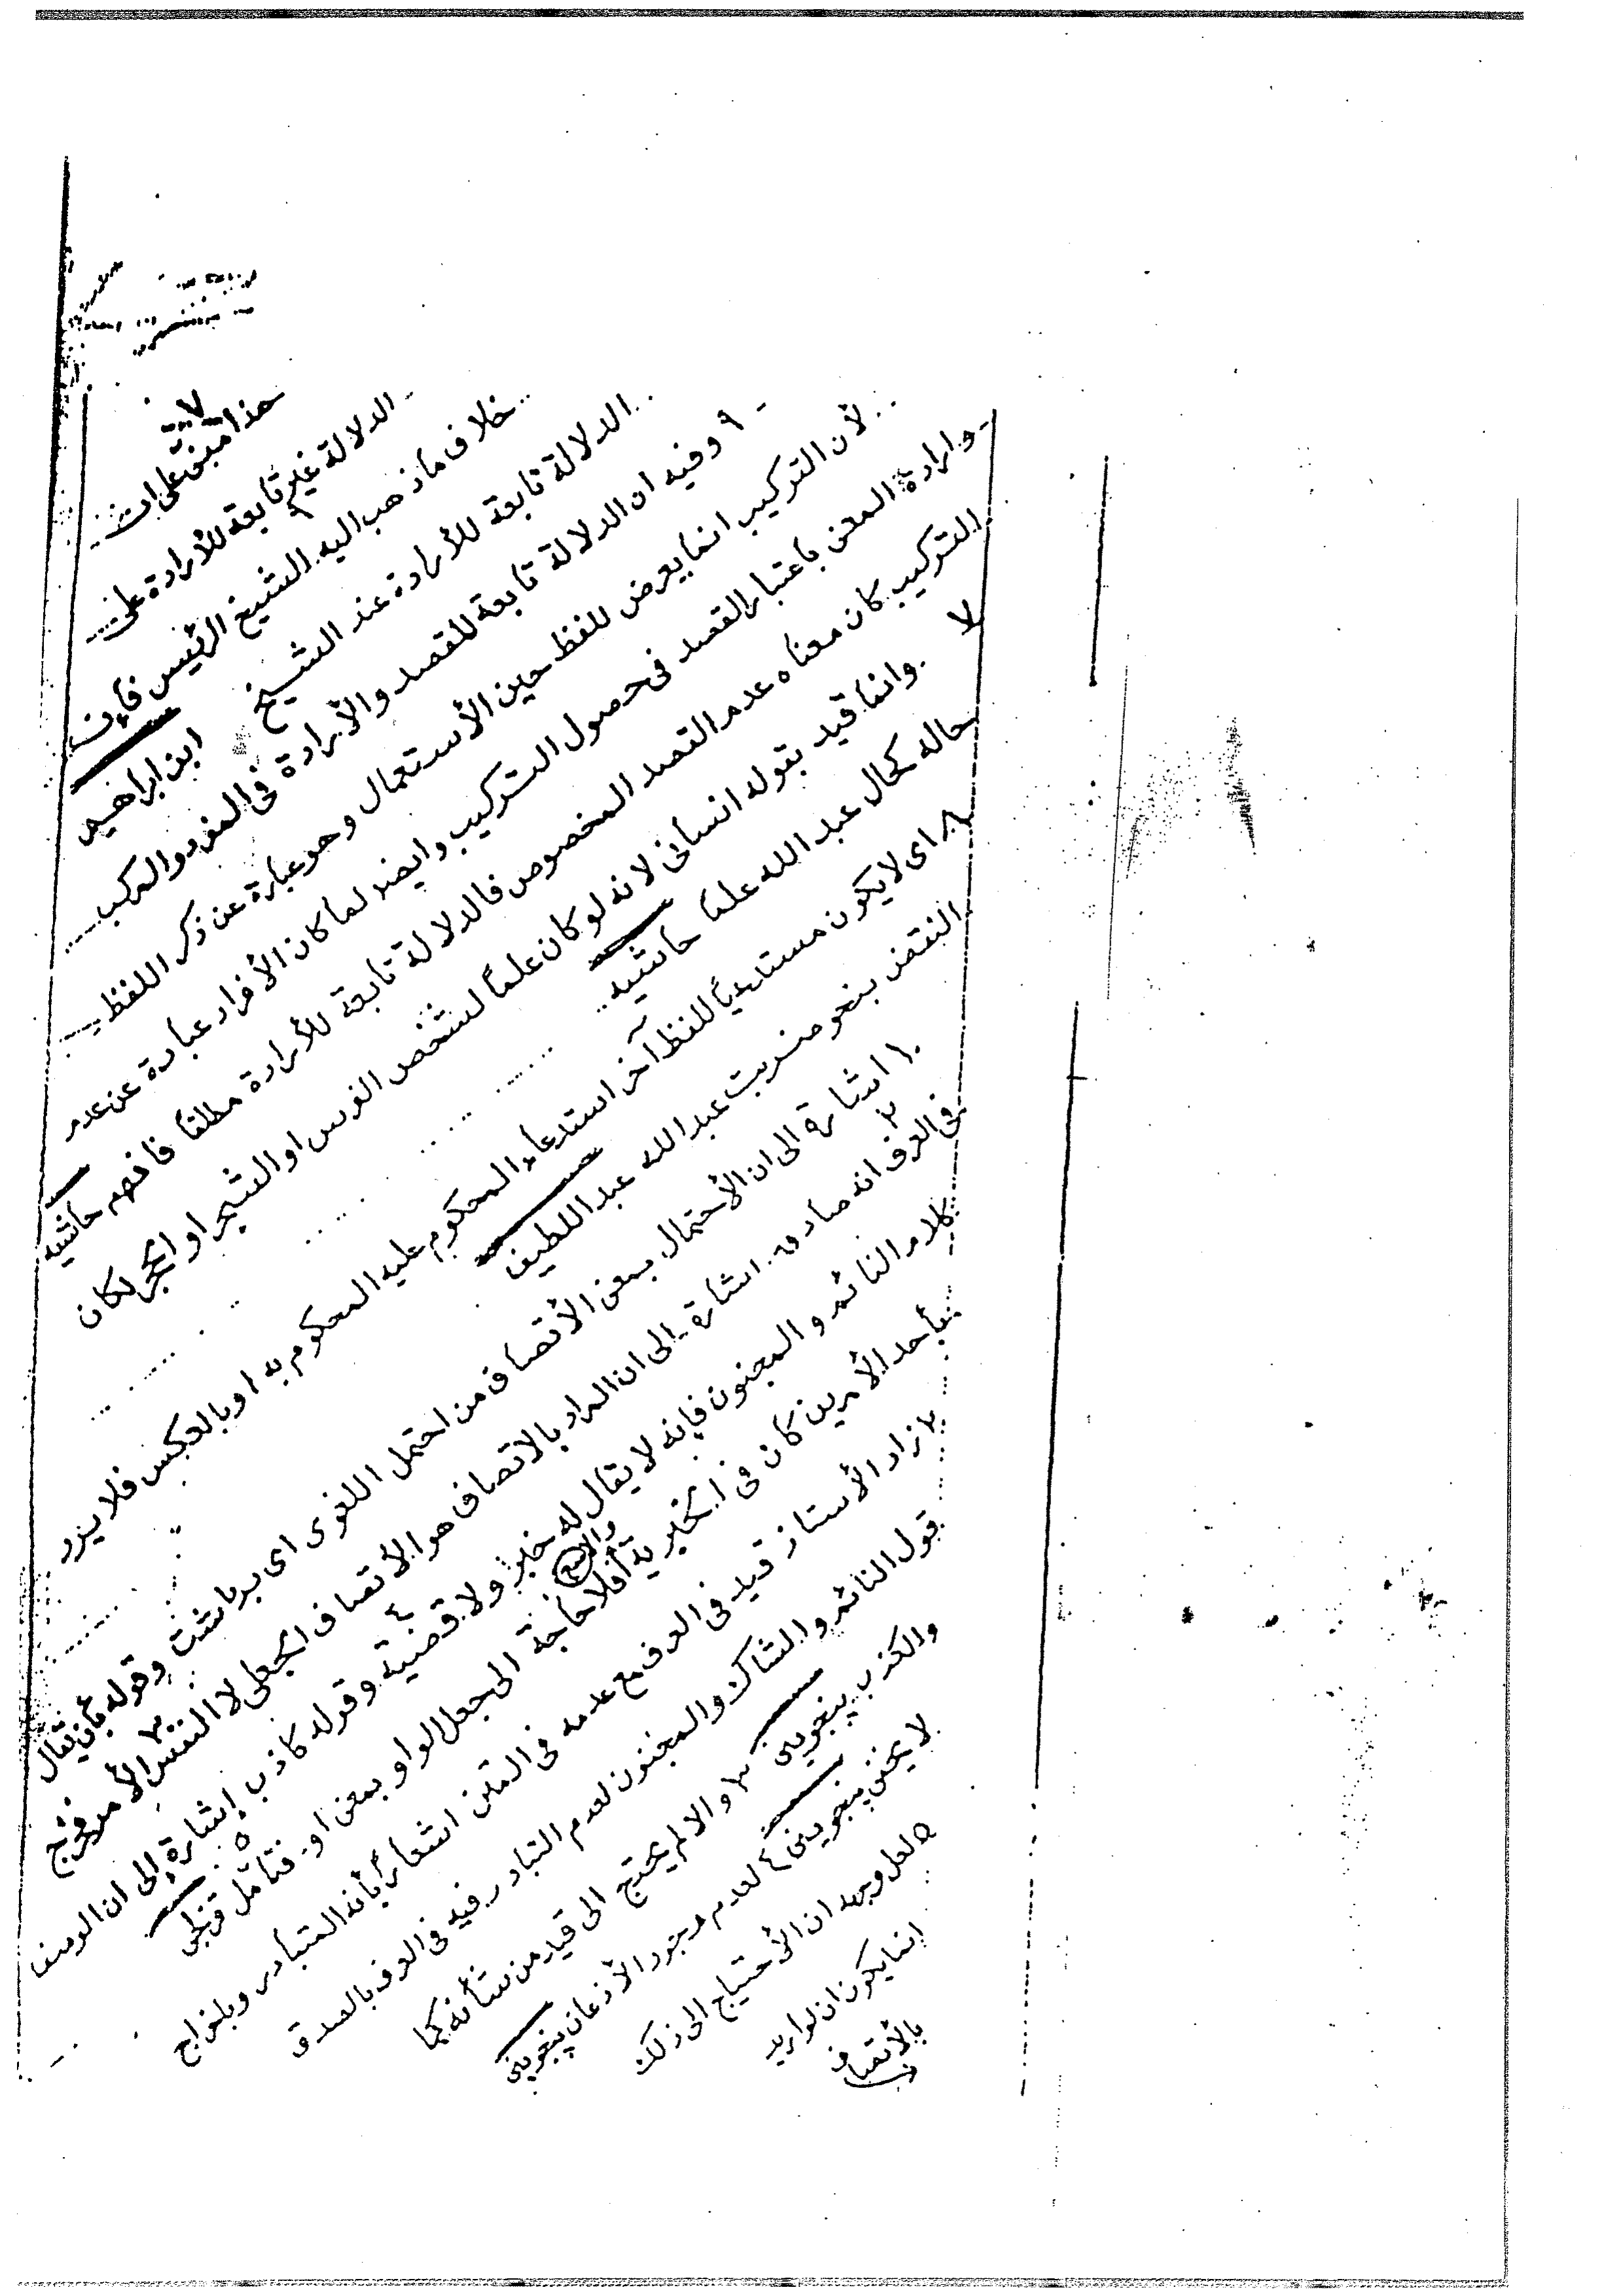 ٧
هذا مبنى على ان
الدلالة غير تابعة للأرادة على
خلاف ماذهب اليه الشيخ الرئيس فإن
الدلالة تابعة للأرادة عند الشيخ ابن ابراهيم
٩ وفيه ان الدلالة تابعة للقصد والأرادة فى المفرد والمركب
لأن التركيب انما يعرض للفظ حين الأستعمال وهو عبارة عن ذكر اللفظ
وارادة المعنى باعتبار القصد فى حصول التركيب وايضا لما كان الأفراد عبارة عن عدم
التركيب كان معناه عدم القصد المخصوص فالدلالة تابعة للأرادة مطلقا فافهم حاشيه
٧ وانما قيد بقوله انسانى لانه لو كان علما لشخص الفرس او الشجر او الحجر لكان
حاله كحال عبد الله علما حاشيه
٨ اى لا يكون مستدعيا للفظ آخر استدعاء المحكوم عليه المحكوم به او بالعكس فلا يرد
النقض بنحو ضربت عبد الله عبد اللطيف
١ اشارة الى ان الأحتمال بمعنى الأتصاف من احتمل اللغوى اى وقوله بأن يقال
فى العرف انه صادق اشارة الى ان المراد بالاتصاف هو الأتصاف لا النفس الأمرى فخرج
كلام النائم والمجنون فإنه لا يقال له خبر ولا قضية وقوله كاذب إشارة إلى ان الوصف
بأحد الأمرين كان فى الخبرية فلا حاجة الى جعل الواو بمعنى او فتأمل قزلجى
٢ زاد الأستاذ قيد فى العرف مع عدمه فى المتن اشعار بأنه المتبادر
قول النائم والشاك والمجنون لعدم التبادر فيه فى العرف بالصدق
والكذب پنجوينى ٣ والا لم يحتج الى قيد من شأنه كما
لا يخفى پنجوينى ٤ لعدم وجود الأذعان پنجوينى
٥ لعل وجهه ان الأحتياج الى ذلك
انما يكون ان لو اريد
بالأتصاف